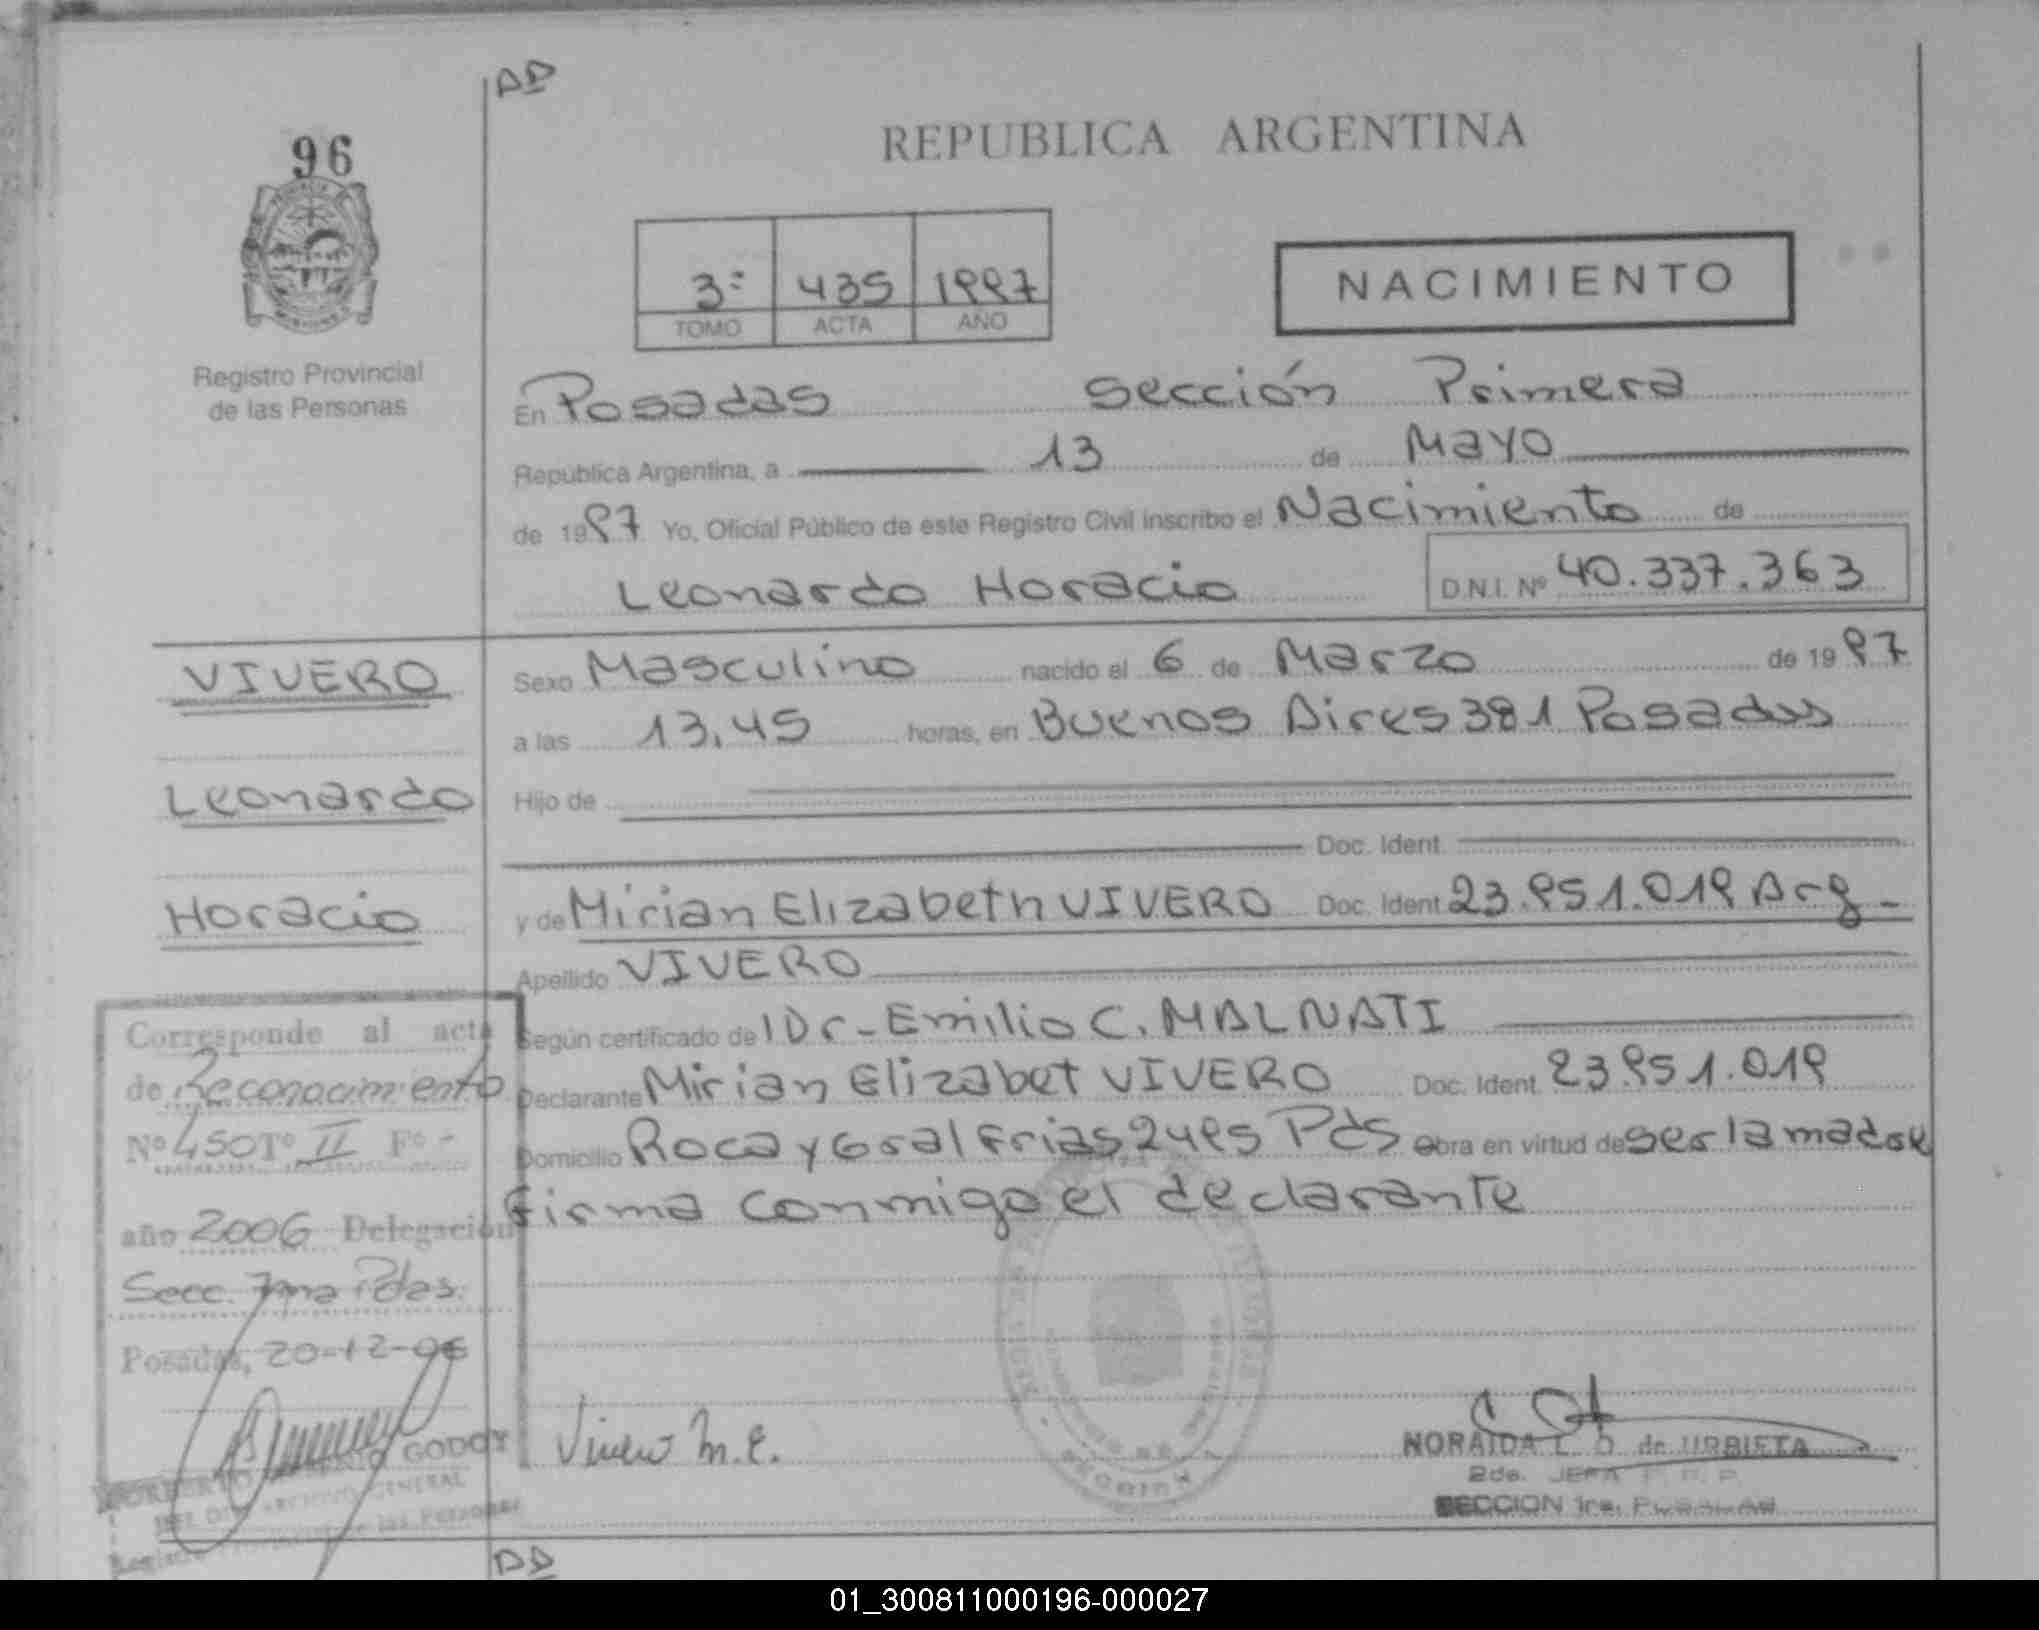 AD
96
REPUBLICA ARGENTINA
3º 435 1997
TOMO ACTA AÑO
NACIMIENTO
Registro Provincial
de las Personas
En Posadas Sección Primera
República Argentina, a 13 de Mayo
de 1997 Yo, Oficial Público de este Registro Civil inscribo el Nacimiento de
Leonardo Horacio D.N.I. Nº 40.337.363
VIVERO
Leonardo
Horacio
Sexo Masculino nacido el 6 de Marzo de 1997
a las 13,45 horas, en Buenos Aires 381 Posadas
Hijo de
Doc. Ident.
y de Mirian Elizabeth VIVERO Doc. Ident. 23.951.019 Arg-
Apellido VIVERO
Según certificado de l Dr- Emilio C. MALNATI
Declarante Mirian Elizabet VIVERO Doc. Ident. 23.951.019
Domicilio Roca y Gral Frias 2495 Pds obra en virtud de ser la madre
firma conmigo el declarante
Corresponde al acta
de Reconocimiento
Nº 450 Tº II Fº -
año 2006 Delegación
Secc. 7ma Pdas.
Posadas, 20-12-06
GODOY
ARCHIVO GENERAL
de las Personas
Vivero M.E.
NORAIDA L. O. de URBIETA
2da. JEFA R. P. P.
SECCION 1ra. POSADAS
AD
01_300811000196-000027